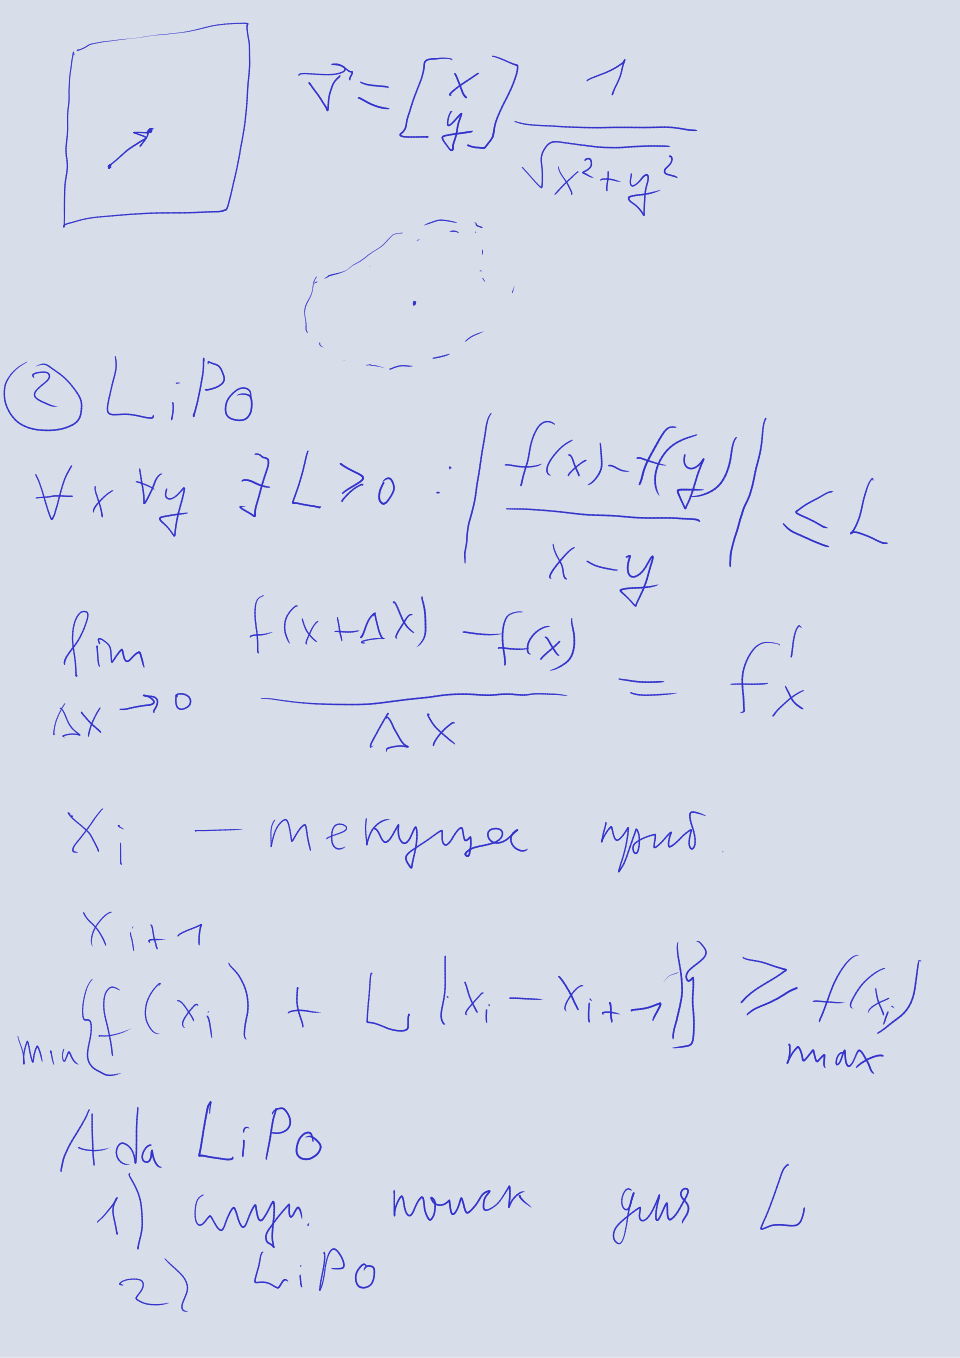 v⃗ = [x y] 1 / √(x² + y²)
② LiPo
∀x ∀y ∃ L ≥ 0 : | (f(x) - f(y)) / (x - y) | ≤ L
lim Δx → 0 (f(x + Δx) - f(x)) / Δx = f'x
xᵢ — текущее приб.
xᵢ₊₁
min {f(xᵢ) + L |xᵢ - xᵢ₊₁|} ≥ f(xᵢ) max
Ada LiPo
1) случ. поиск для L
2) LiPo